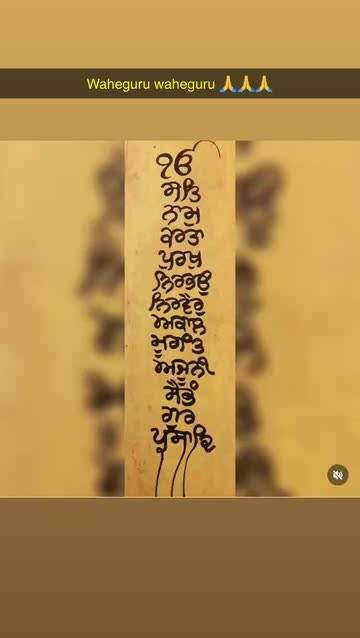 Waheguru waheguru 🙏🙏🙏
ੴ
ਸਤਿ
ਨਾਮੁ
ਕਰਤਾ
ਪੁਰਖੁ
ਨਿਰਭਉ
ਨਿਰਵੈਰੁ
ਅਕਾਲ
ਮੂਰਤਿ
ਅਜੂਨੀ
ਸੈਭੰ
ਗੁਰ
ਪ੍ਰਸਾਦਿ